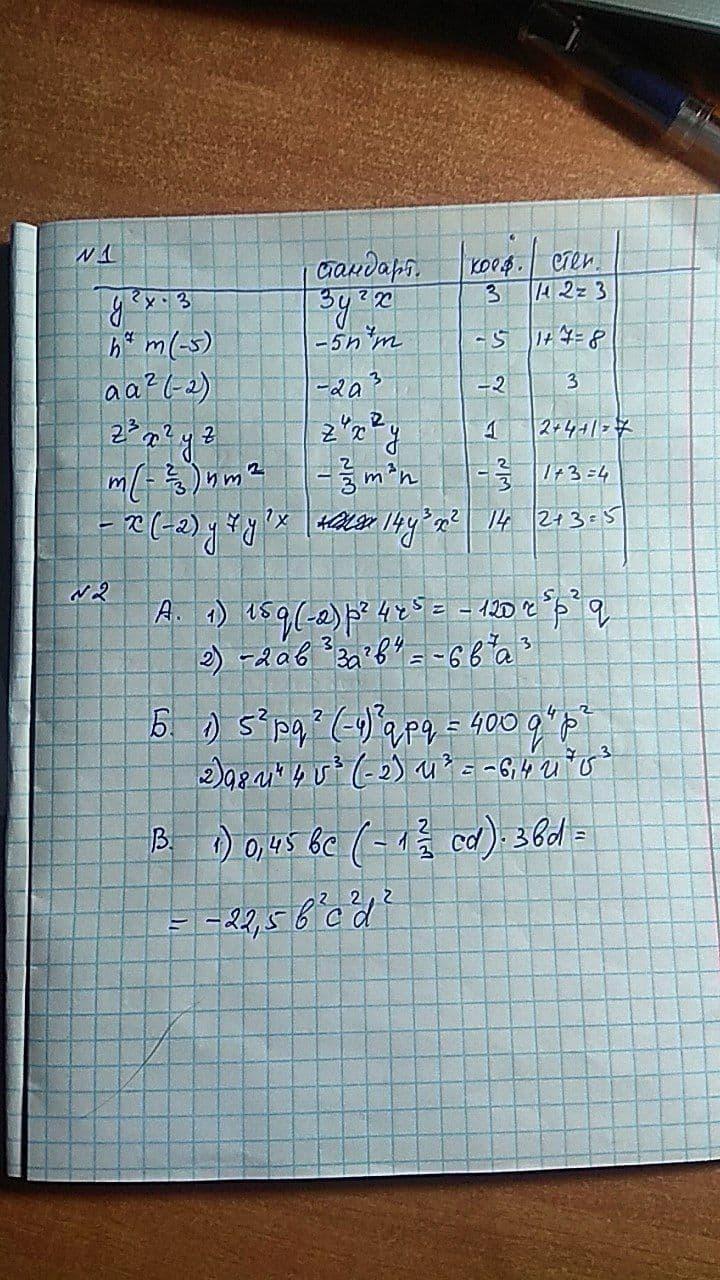 №1
стандарт. коеф. степ.
y²x·3 3y²x 3 1+2=3
n⁷m(-5) -5n⁷m -5 1+7=8
aa²(-2) -2a³ -2 3
z³x²yz z⁴x²y 1 2+4+1=7
m(-2/3)nm² -2/3m³n -2/3 1+3=4
-x(-2)y7y²x 14y³x² 14 2+3=5
№2
А. 1) 15q(-2)p²4r⁵ = -120r⁵p²q
2) -2ab³3a²b⁴ = -6b⁷a³
Б. 1) 5²pq²(-4)²qpq = 400q⁴p²
2) 0,8u⁴4v³(-2)u³ = -6,4u⁷v³
В. 1) 0,45bc(-1 2/3 cd)·3bd =
= -22,5b²c²d²